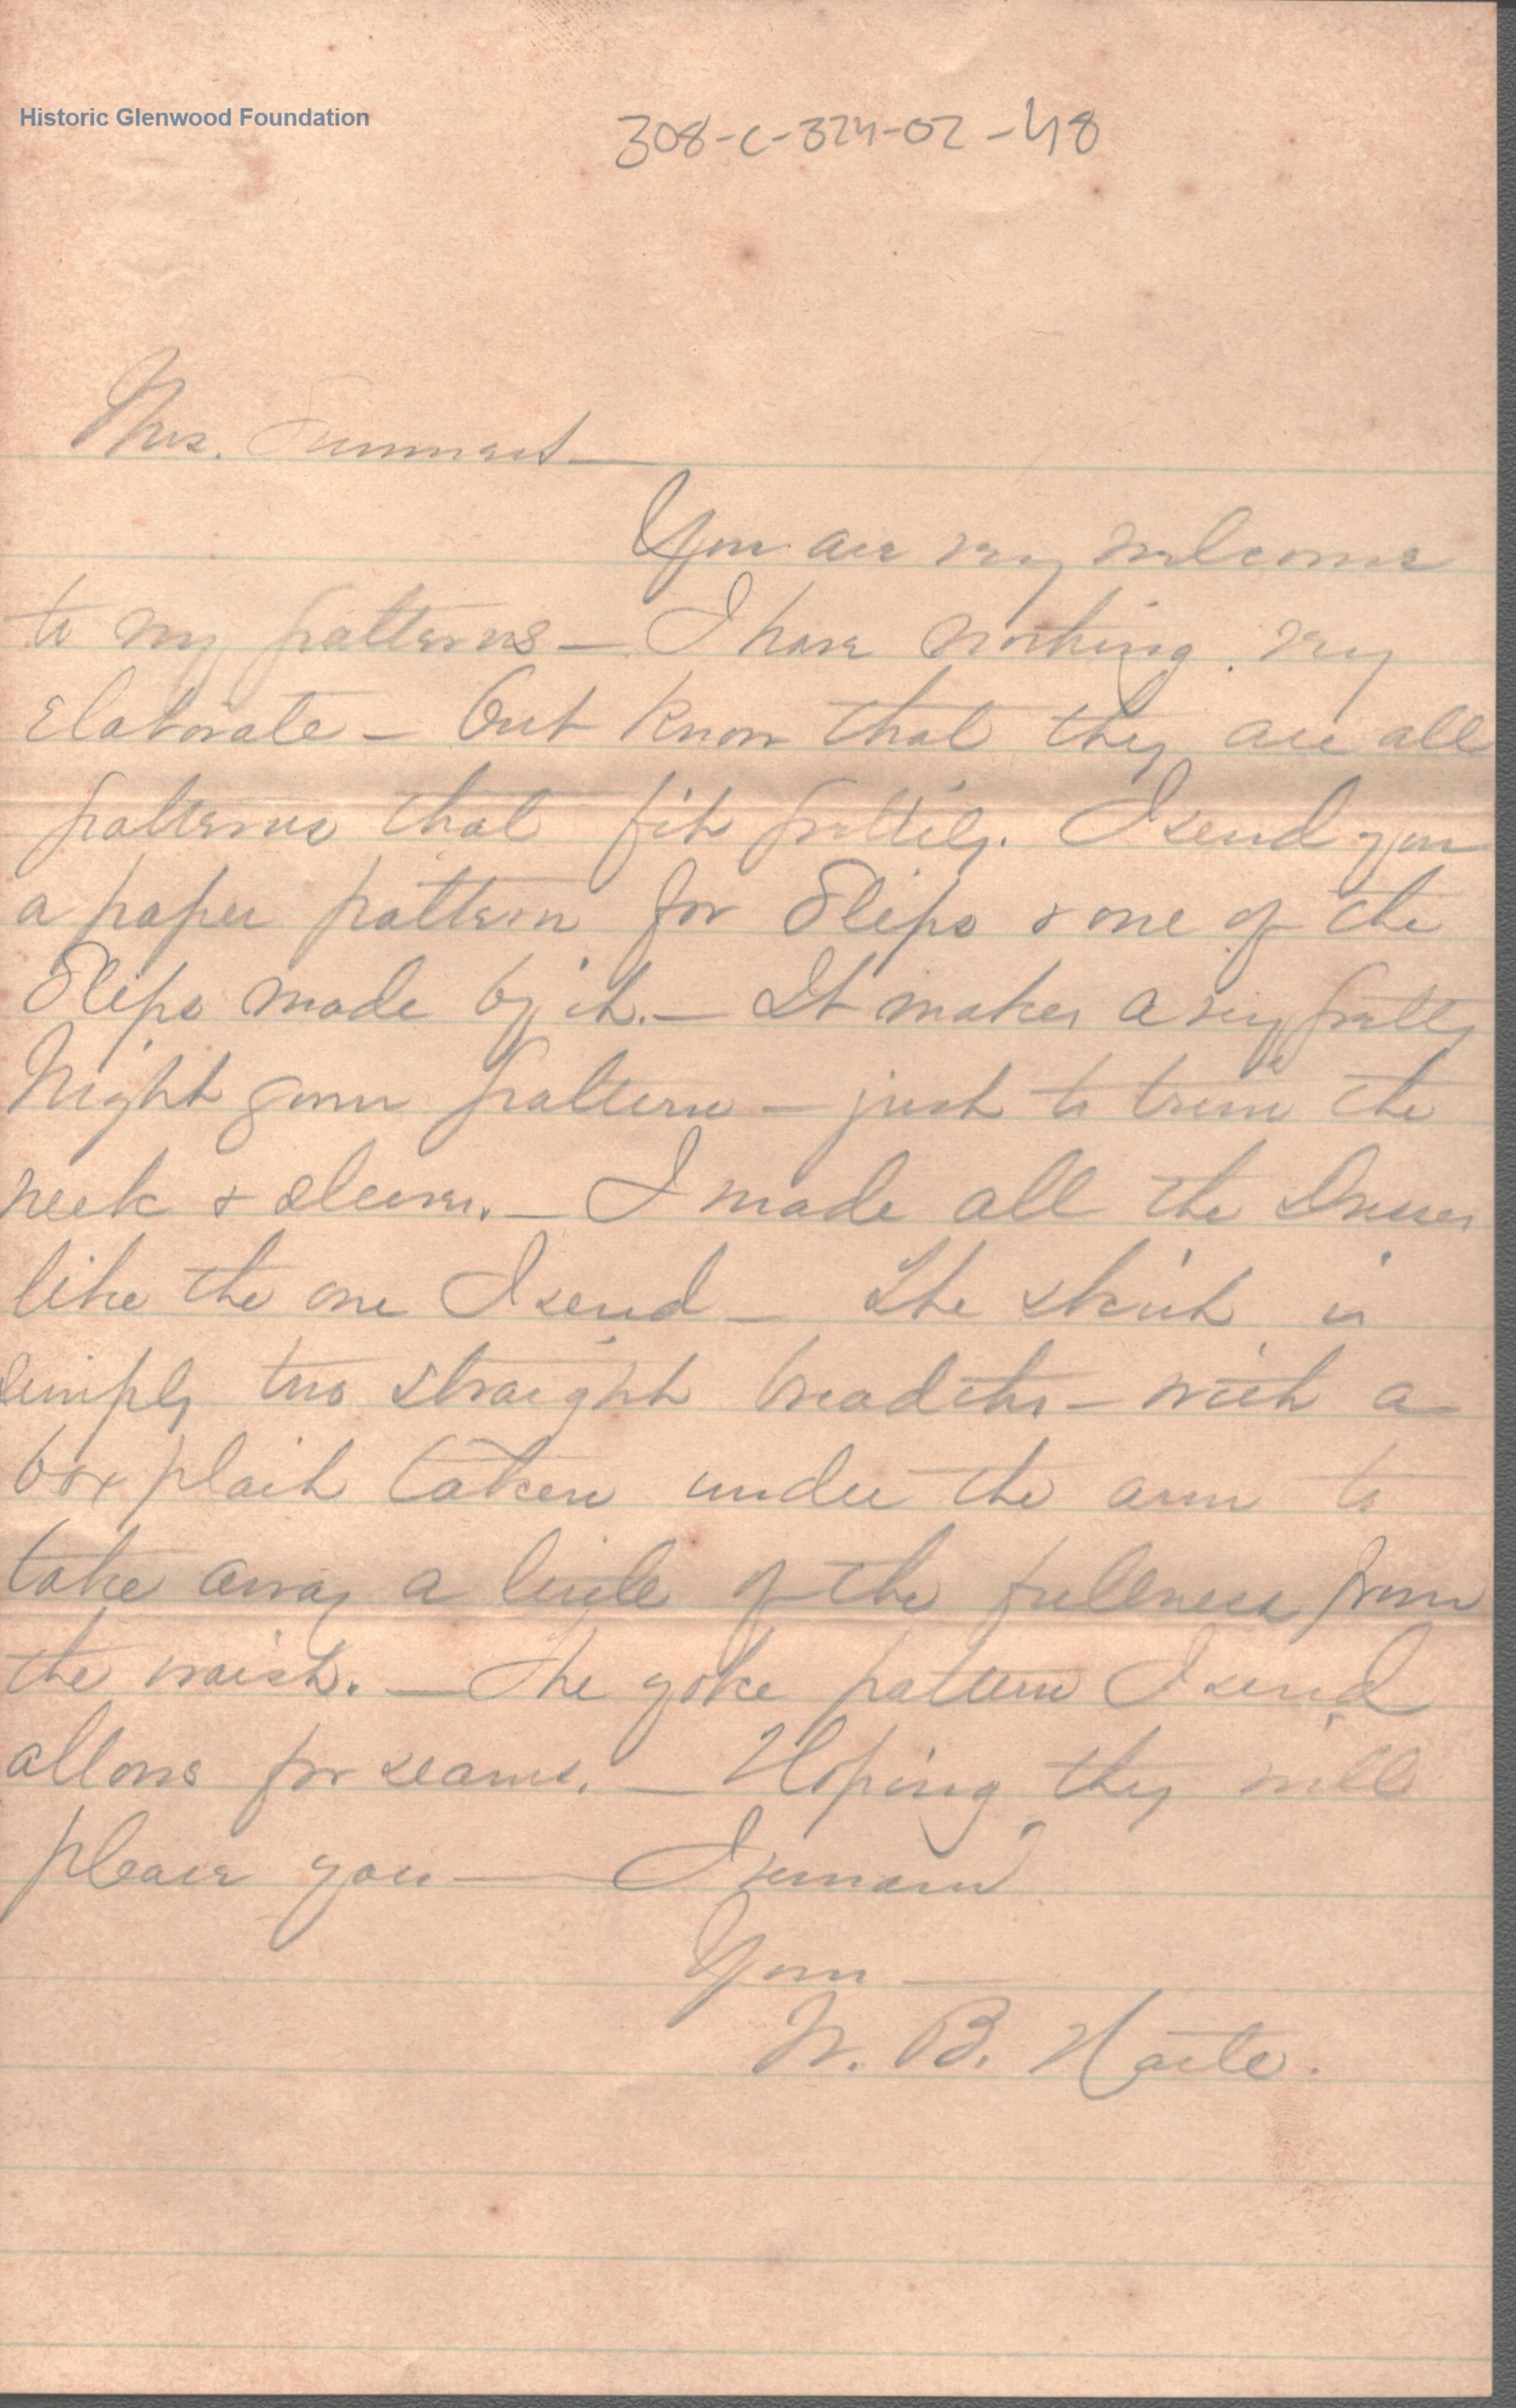 Historic Glenwood Foundation
308-C-324-02-48
Mrs.
You are very welcome
to my patterns — I have nothing very
Elaborate — but know that they are all
patterns that fit prettily. I send you
a paper pattern for Slips & one of the
Slips made by it. — It makes a very pretty
Night gown pattern — just to trim the
neck & sleeves. — I made all the Dresses
like the one I send — The skirt is
simply two straight breadths — with a
box plait taken under the arm to
take away a little of the fullness from
the waist. — The yoke pattern I send
allows for seams. — Hoping they will
please you — I remain
Yours —
B. Harte.